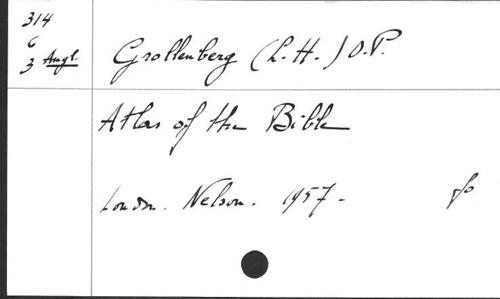 314
6
3 Angl.
Grollenberg (L. H.) O.P.
Atlas of the Bible
London. Nelson. 1957 -
fo